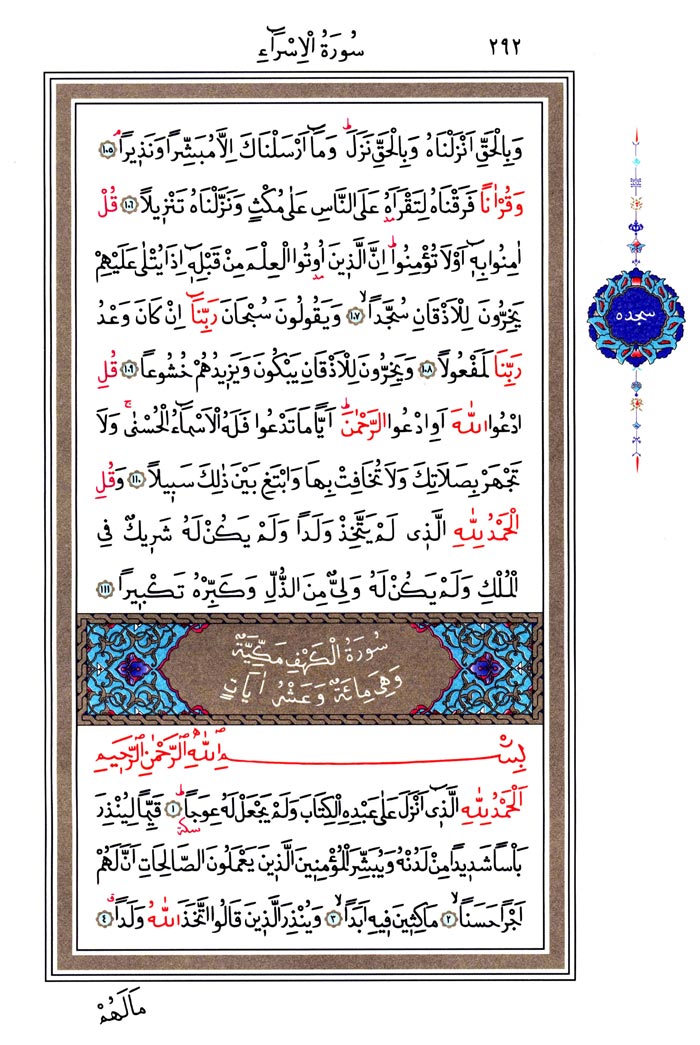 ٢٩٢ سُورَةُ الْاِسْرَٓاءِ
وَبِالْحَقِّ اَنْزَلْنَاهُ وَبِالْحَقِّ نَزَلَۜ وَمَٓا اَرْسَلْنَاكَ اِلَّا مُبَشِّرًا وَنَذ۪يرًاۢ ﴿١٠٥﴾
وَقُرْاٰنًا فَرَقْنَاهُ لِتَقْرَاَهُ عَلَى النَّاسِ عَلٰى مُكْثٍ وَنَزَّلْنَاهُ تَنْز۪يلًا ﴿١٠٦﴾ قُلْ
اٰمِنُوا بِه۪ٓ اَوْ لَا تُؤْمِنُواۜ اِنَّ الَّذ۪ينَ اُو۫تُوا الْعِلْمَ مِنْ قَبْلِه۪ٓ اِذَا يُتْلٰى عَلَيْهِمْ
يَخِرُّونَ لِلْاَذْقَانِ سُجَّدًاۙ ﴿١٠٧﴾ وَيَقُولُونَ سُبْحَانَ رَبِّنَٓا اِنْ كَانَ وَعْدُ
رَبِّنَا لَمَفْعُولًا ﴿١٠٨﴾ وَيَخِرُّونَ لِلْاَذْقَانِ يَبْكُونَ وَيَز۪يدُهُمْ خُشُوعًا ﴿١٠٩﴾ قُلِ
ادْعُوا اللّٰهَ اَوِ ادْعُوا الرَّحْمٰنَۜ اَيًّا مَا تَدْعُوا فَلَهُ الْاَسْمَٓاءُ الْحُسْنٰىۚ وَلَا
تَجْهَرْ بِصَلَاتِكَ وَلَا تُخَافِتْ بِهَا وَابْتَغِ بَيْنَ ذٰلِكَ سَب۪يلًا ﴿١١٠﴾ وَقُلِ
الْحَمْدُ لِلّٰهِ الَّذ۪ي لَمْ يَتَّخِذْ وَلَدًا وَلَمْ يَكُنْ لَهُ شَر۪يكٌ فِي
الْمُلْكِ وَلَمْ يَكُنْ لَهُ وَلِيٌّ مِنَ الذُّلِّ وَكَبِّرْهُ تَكْب۪يرًا ﴿١١١﴾
سجده
سُورَةُ الْكَهْفِ مَكِّيَّةٌ
وَهِيَ مِائَةٌ وَعَشْرُ اٰيَاتٍ
بِسْمِ اللّٰهِ الرَّحْمٰنِ الرَّح۪يمِ
اَلْحَمْدُ لِلّٰهِ الَّذ۪ٓي اَنْزَلَ عَلٰى عَبْدِهِ الْكِتَابَ وَلَمْ يَجْعَلْ لَهُ عِوَجًاۜ ﴿١﴾ قَيِّمًا لِيُنْذِرَ
سكتة
بَاْسًا شَد۪يدًا مِنْ لَدُنْهُ وَيُبَشِّرَ الْمُؤْمِن۪ينَ الَّذ۪ينَ يَعْمَلُونَ الصَّالِحَاتِ اَنَّ لَهُمْ
اَجْرًا حَسَنًاۙ ﴿٢﴾ مَاكِث۪ينَ ف۪يهِ اَبَدًاۙ ﴿٣﴾ وَيُنْذِرَ الَّذ۪ينَ قَالُوا اتَّخَذَ اللّٰهُ وَلَدًاۗ ﴿٤﴾
مَالَهُمْ